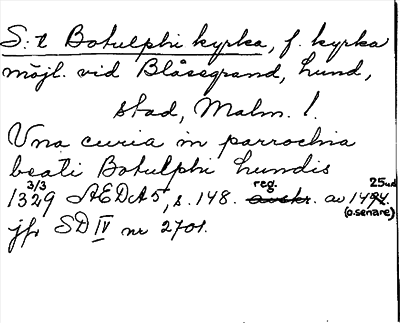 S:t Botulphi kyrka, f. kyrka
möjl. vid Blåsegränd, Lund,
stad, Malm. l.
Una curia in parrochia
beati Botulphi Lundis
3/3 1329 ÄEDA5, s. 148. reg. avskr. av 1494.
(o. senare)
jfr SD IV nr 2701.